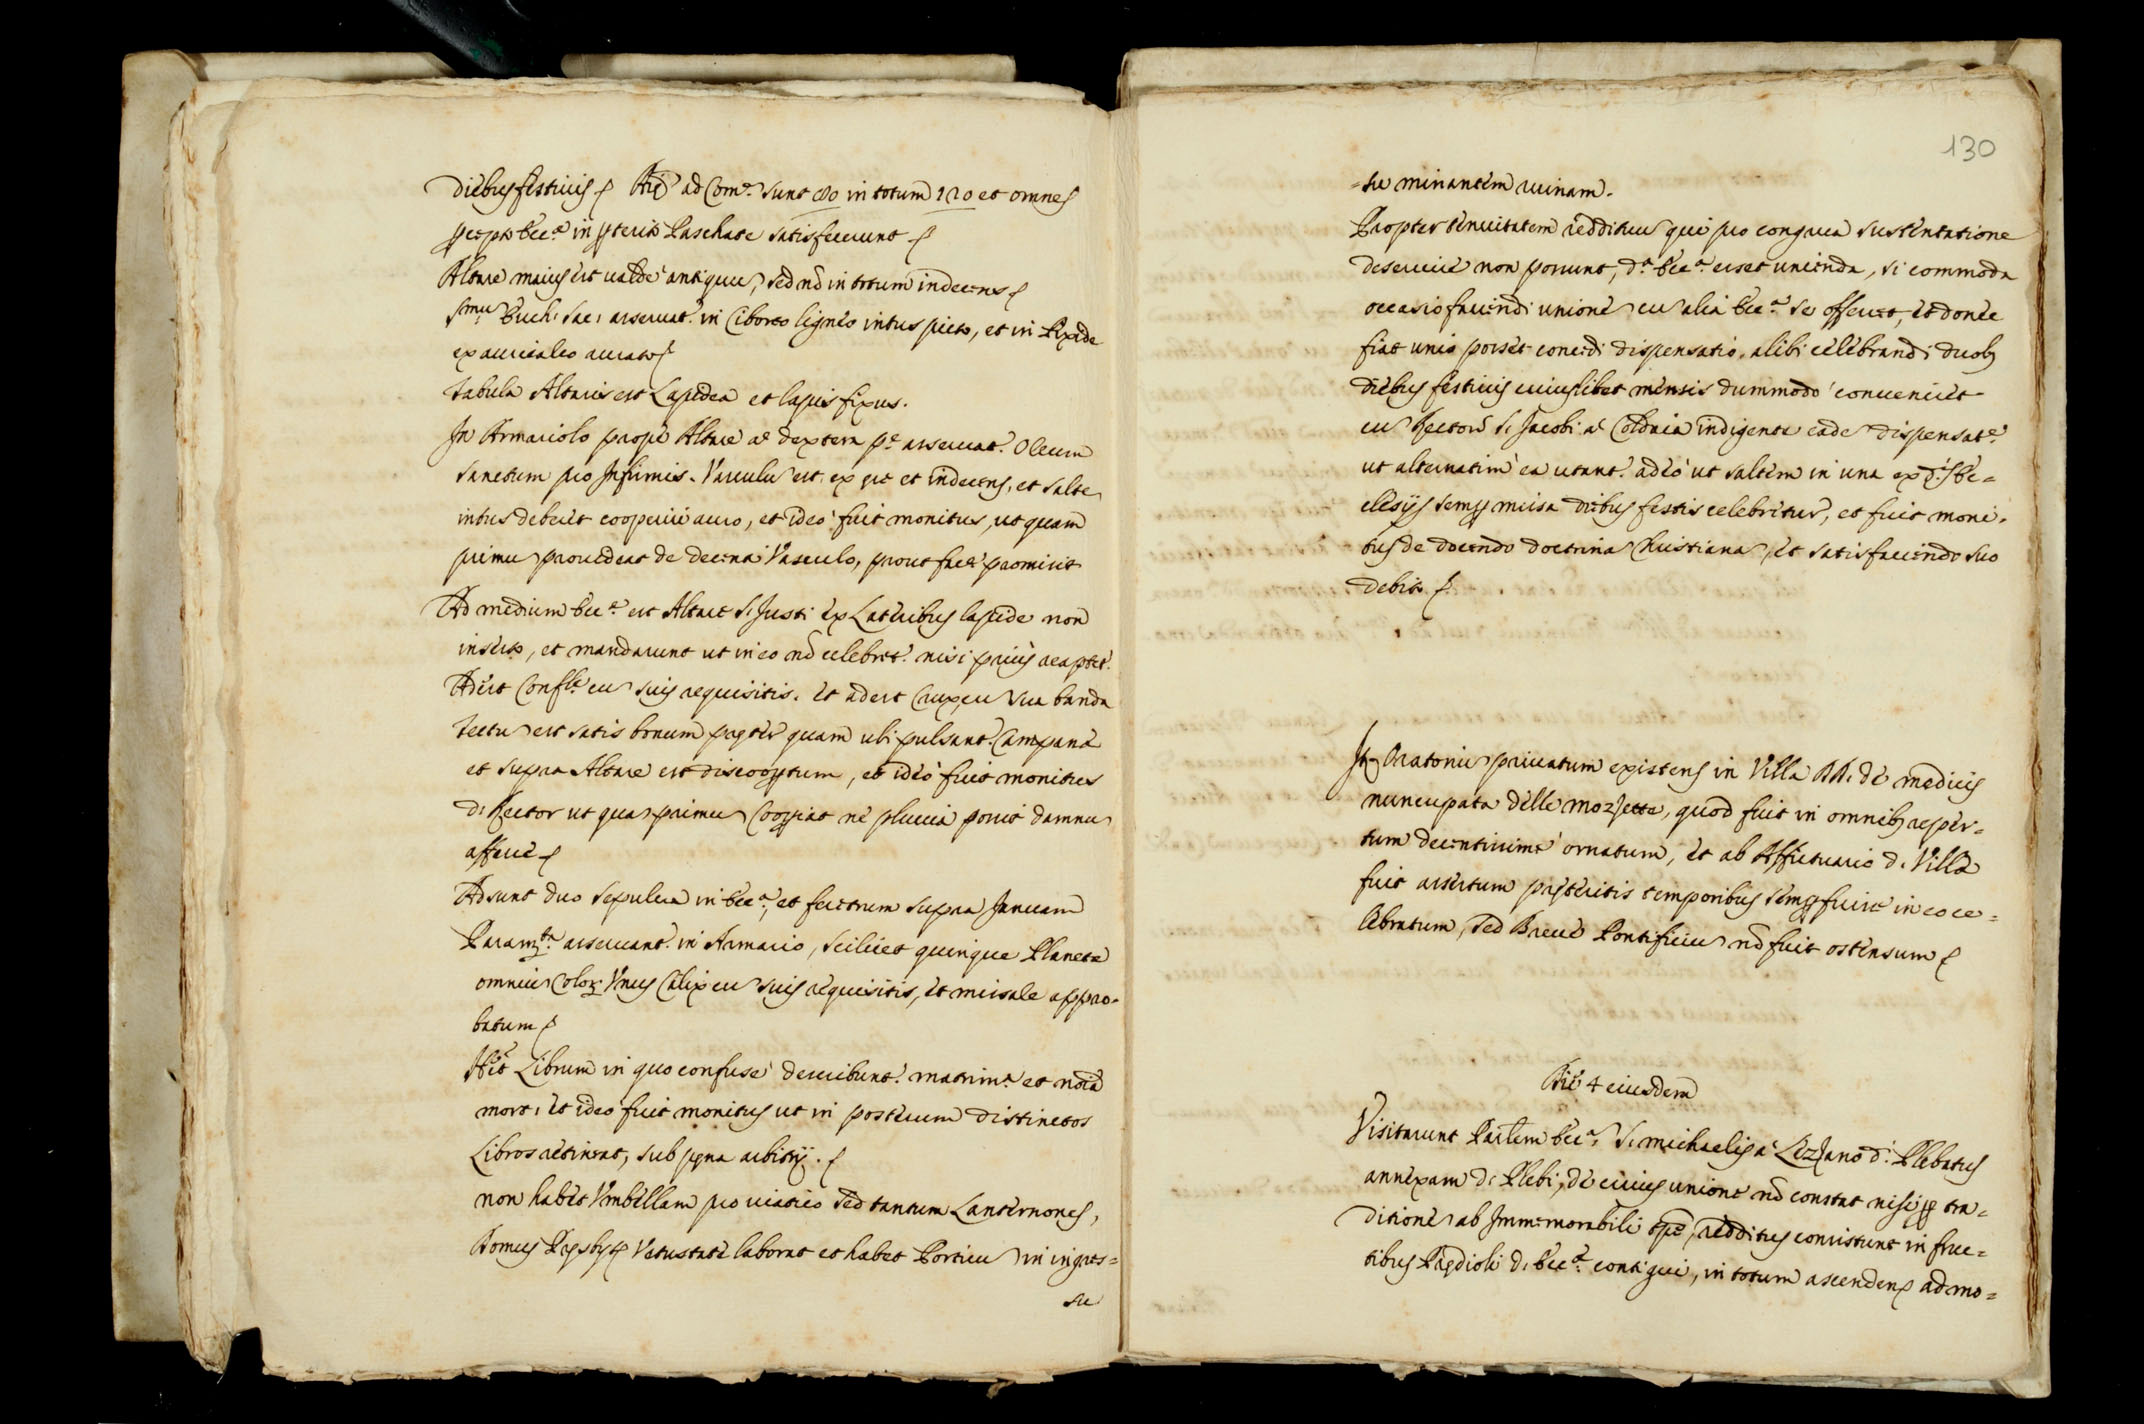 diebus festivis Aiẽ ad Com.ᵉ sunt 80 in totum 120 et omnes
ꝑcepto Ecc.ᵉ in ꝑterito Paschate satisfecerunt
Altare maius est valde antiquu, sed nõ in totum indecens
S.mu Euch. Sac. asservat.ʳ in Ciborio ligneo intus picto, et in Pixide
ex auricalco aurato
tabula Altaris est Lapidea et lapis fixus.
In Armariolo prope Altare a dextera p.ᵉ asservat.ʳ Oleum
sanctum pro Infirmis. Vasculu est ex et indecens, et salte
intus deberet cooperiri auro, et ideo fuit monitus, ut quam
primu provideat de decenti Vasculo, prout facẽ promisit
Ad medium Ecc.ᵉ est Altare S. Justi ex Lateribus lapide non
inserto, et mandarunt ut in eo nõ celebret.ʳ nisi prius reaptet.ʳ
Adest Conf.le cu suis requisitis. et adest Crux cu sua banda
tectu est satis bonum preter quam ubi pulsant.ʳ Campane
et supra Altare est discooꝑtum, et ideo fuit monitus
d. Rector ut qua primu Cooꝑiat ne pluvia possit damnu
afferre
Adsunt duo sepulcra in Ecc.ᵃ, et feretrum supra Januam
Param.ta asservant.ʳ in Armario, scilicet quinque Planete
omniu Coloꝝ Unus Calix cu suis requisitis, et missale appro-
batum
Hẽt Librum in quo confuse describunt.ʳ matrim.ᵃ et noĩa
mort. et ideo fuit monitus ut in posterum distinctos
Libros retineat, sub pena arbitrij.
non habet Umbellam pro viatico sed tantum Lanternones,
Domus Pręsbyt. Vetustate laborat et habet Porticu in ingres=
su
130
=su minantem ruinam.
Propter tenuitatem redditu qui pro congrua sustentatione
deservire non possunt, d.ᵃ Ecc.ᵃ esset unienda, si commoda
occasio faciendi unione cu alia Ecc.ᵃ se offerret, et donec
fiat unio posset concedi dispensatio, alibi celebrandi duobꝫ
diebus festivis cuiuslibet mensis dummodo conveniret
cu Rectore S. Jacobi a Coldaia indigente eade dispensat.ᵉ
ut alternatim ea utant.ʳ adeo ut saltem in una ex d.ˢ Ec=
clesijs semꝑ missa diebus festis celebretur, et fuit moni=
tus de docendo doctrina Christiana, et satisfaciendo suo
debito.
It Oratoriu privatum existens in Villa RR. de medicis
nuncupata delle mozzette, quod fuit in omnibꝫ reper=
tum decentissime ornatum, et ab Affictuario d. Villa
fuit assertum preteritis temporibus semꝑ fuisse in eo ce=
lebratum, sed Breve Pontificiu nõ fuit ostensum
Die 4 eiusdem
Visitarunt Par.lem Ecc.ᵃ S. Michaelis a Lezzano d. Plebatus
annexam d. Plebi, de cuius unione nõ constat nisi ꝑ tra=
ditione ab Immemorabili tpẽ, redditus consistunt in fruc=
tibus Prędioli d. Ecc.ᵉ contigui, in totum ascenden ad mo=